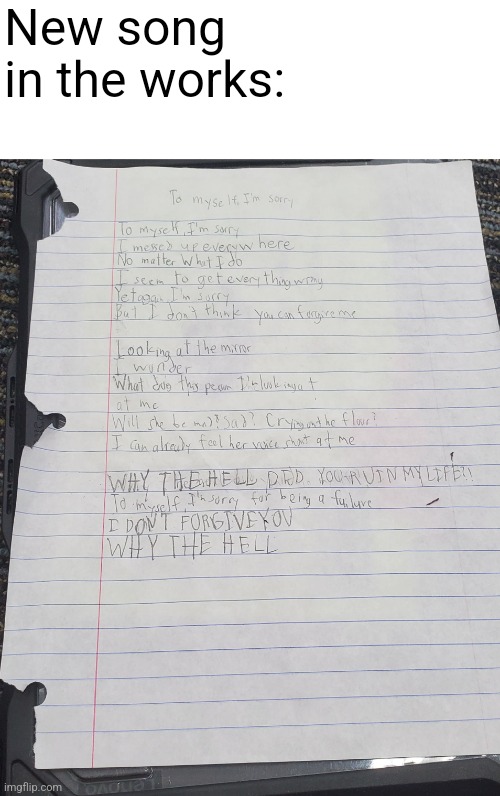 New song
in the works:
To myself, I'm sorry
To myself, I'm sorry
I messed up everywhere
No matter what I do
I seem to get everything wrong
Yet again I'm sorry
But I don't think you can forgive me
Looking at the mirror
I wonder
What does this person I'm looking at
at me
Will she be mad? Sad? Crying on the floor?
I can already feel her voice shout at me
WHY THE HELL DID YOU RUIN MY LIFE!!
To myself I'm sorry for being a failure
I DON'T FORGIVE YOU
WHY THE HELL
imgflip.com
Lenovo